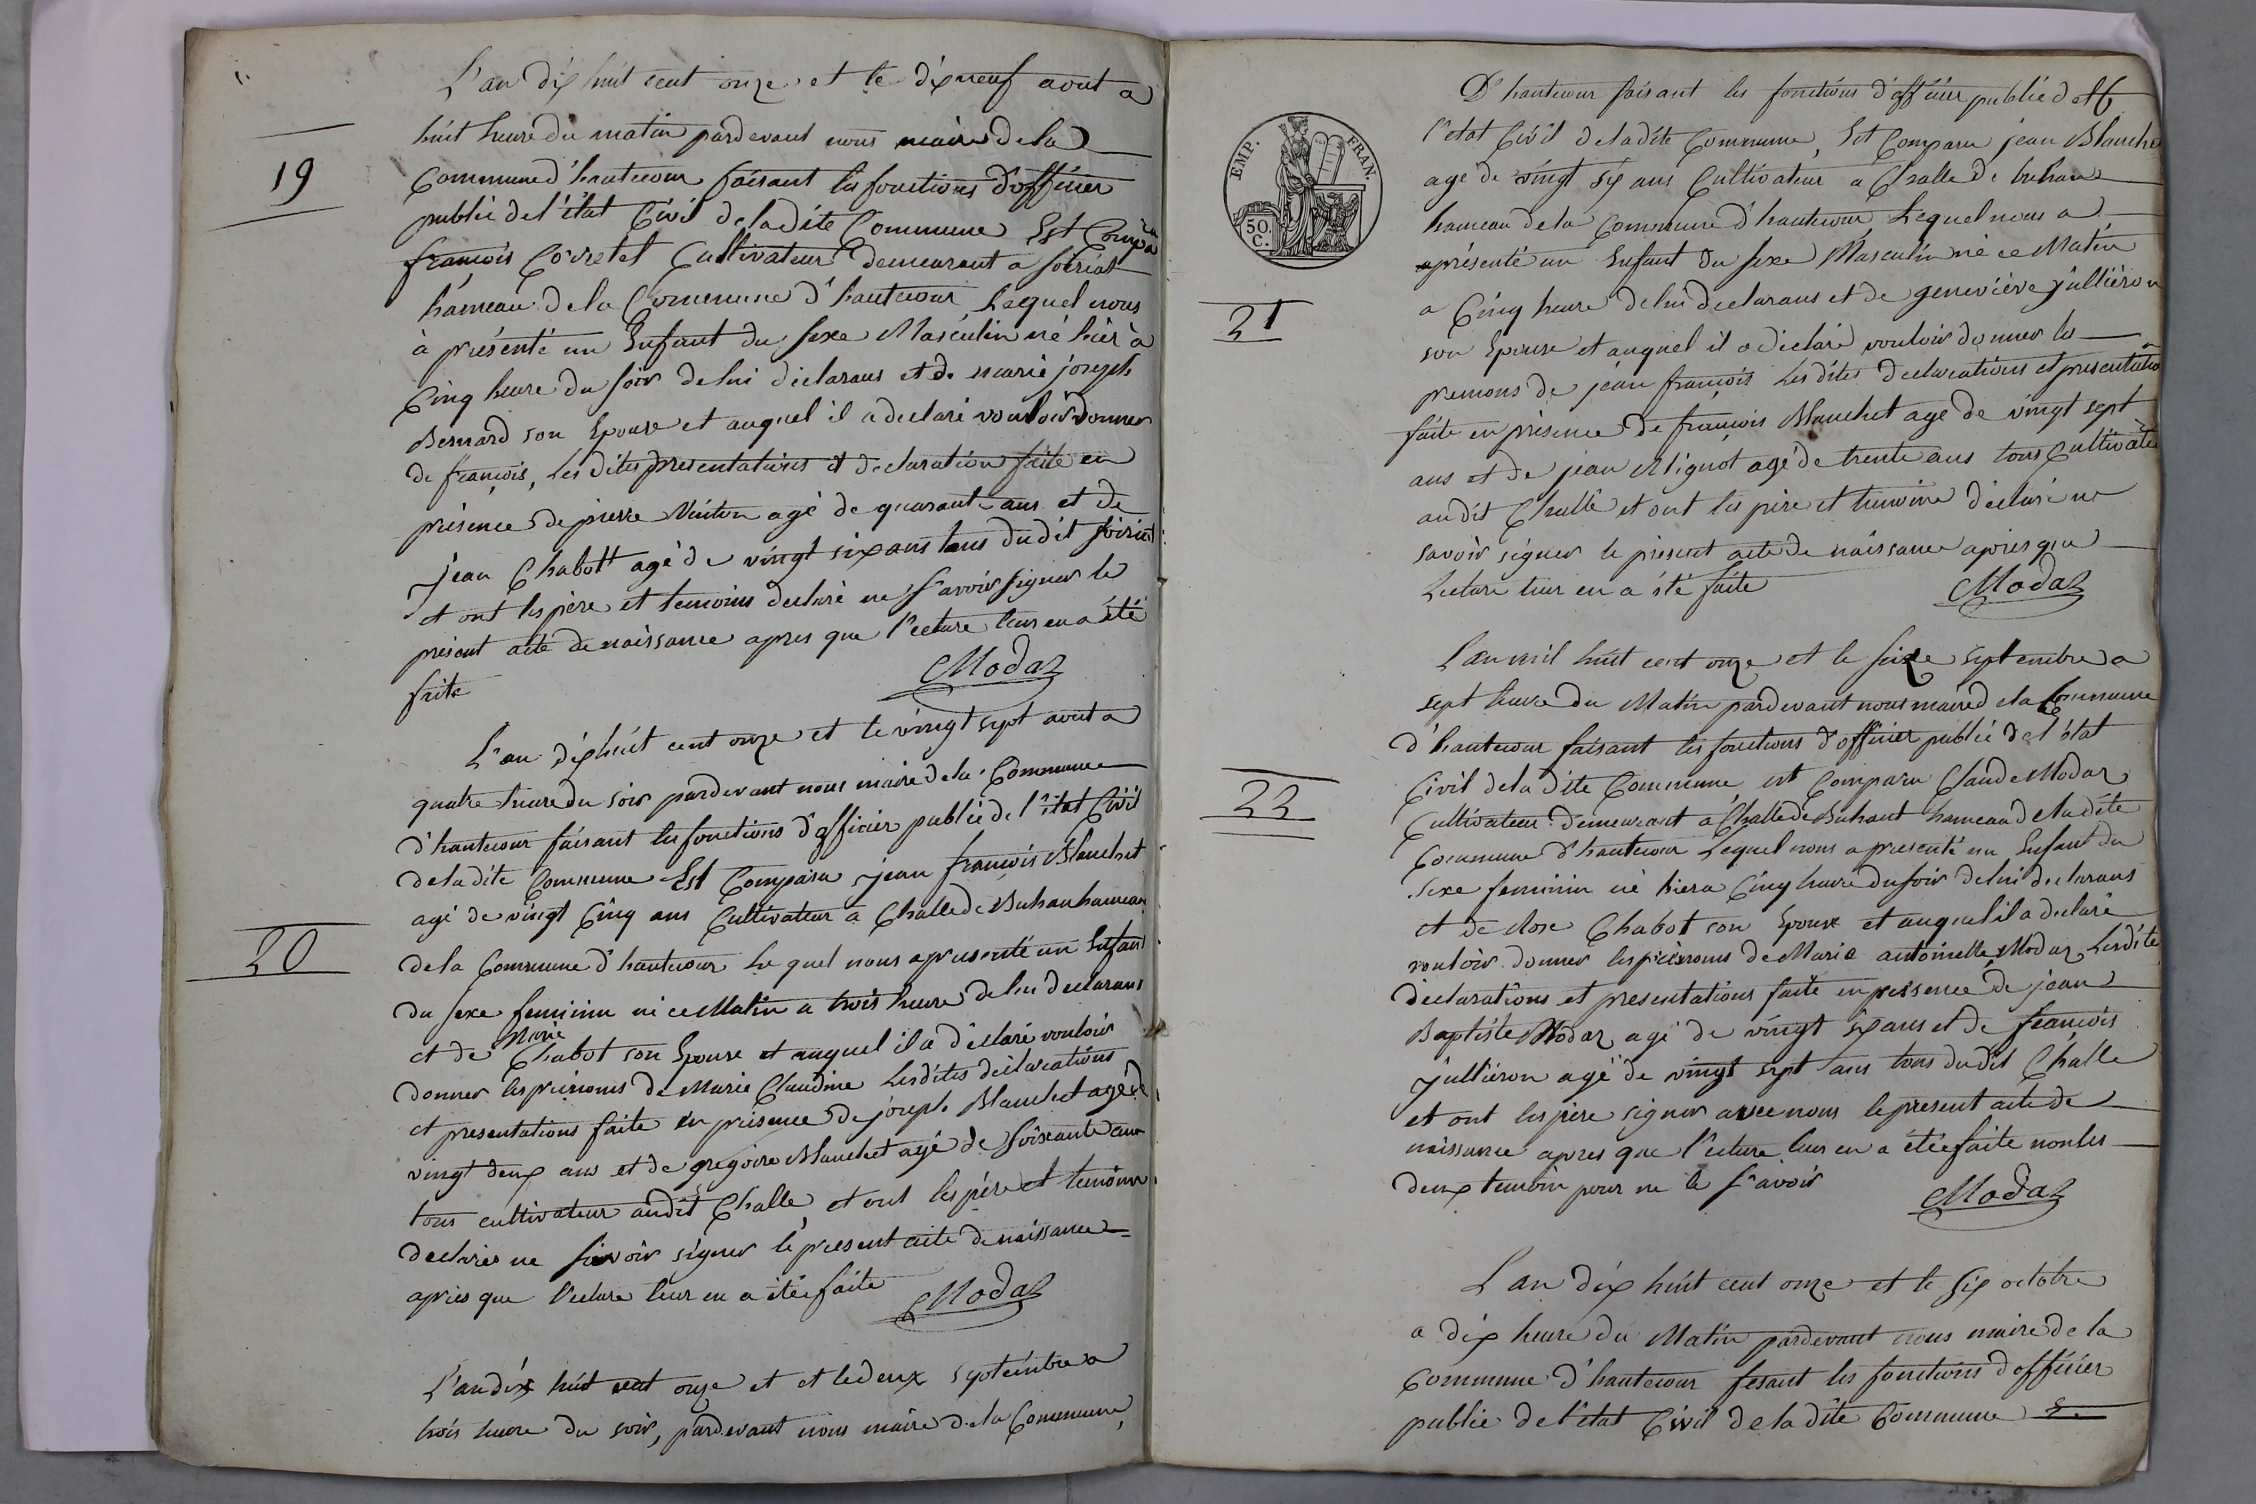 L'an dix huit cent onze et le dixneuf aout a
huit heure du matin pardevant nous maire de la
19
Commune d'hautecour faisant les fonctions d'officier
public de l'état Civil de la dite Commune Est Compa
françois Cultivateur demeurant a
hameau de la Commune d'hautecour Lequel nous
à présenté un Enfant du sexe Masculin né hier à
Cinq heure du soir de lui declarans et de marie joseph
Bernard son Epouse et auquel il a declaré vouloir donner
de françois, Les dites presentatoins et declaration faite en
présence de pierre agé de quarante ans et de
jean Chabott agé de vingt six ans tous du dit
et ont les père et temoins declaré ne savoir signer le
présent acte de naissance apres que l'ecture leur en a été
faite
Modaz
L'an dixhuit cent onze et le vingt sept aout a
quatre heure du soir pardevant nous maire de la Commune
d'hautecour faisant les fonctions d'officier public de l'état Civil
de la dite Commune Est Comparu jean françois Blanchet
agé de vingt Cinq ans Cultivateur a Challe de Buhan hameau
20
de la Commune d'hautecour Le quel nous a presenté un Enfant
du sexe feminin né ce Matin a trois heure de lui declarans
Marie
et de Chabot son Epouse et auquel il a déclaré vouloir
donner les prenoms de Marie Claudine Les dites déclarations
et presentations faite en présence de joseph Blanchet agé de
vingt deux ans et de gregoire Blanchet agé de soixante ans
tous cultivateur au dit Challe, et ont les père et temoins
declarés ne savoir signer le present acte de naissance
apres que l'ecture leur en a étée faite
Modaz
L'an dix huit cent onze et et le deux septembre a
trois heure du soir, pardevant nous maire de la Commune,
D'hautecour faisant les fonctions d'officier public de
l'etat Civil de la dite Commune, Est Comparu jean Blanchet
age de vingt six ans Cultivateur a Challe de buhan
hameau de la Commune d'hautecour Lequel nous a
présenté un Enfant du sexe Masculin né ce Matin
EMP. FRAN.
50. C.
21
a Cinq heure de lui declarans et de geneviève jullièron
son Epouse et auquel il a déclaré vouloir donner les
prenoms de jean françois Les dites declarations et presentation
faite en présence de françois Blanchet age de vingt sept
ans et de jean Mignot agé de trente ans tous Cultivate
au dit Challe et ont les père et temoins déclaré ne
savoir signer le présent acte de naissance apres que
Lecture leur en a été faite
Modaz
L'an mil huit cent onze et le seize septembre a
sept heure du Matin pardevant nous maire de la Commune
d'hautecour faisant les fonctions d'officier public de l'état
22
Civil de la dite Commune est Comparu Claude Modaz
Cultivateur demeurant à Challe de Buhant hameau de la dite
Commune d'hautecour Lequel nous a presenté un Enfant du
sexe feminin né hier a Cinq heure du soir de lui declarans
et de Rose Chabot son Epouse et auquel il a declaré
vouloir donner les prénoms de Marie antoinette Modaz Les dite
déclarations et presentations faite en presence de jean
Baptiste Modaz agé de vingt six ans et de françois
jullièron agé de vingt sept ans tous du dit Challe
et ont les père signer avec nous le present acte de
naissance apres que l'ecture leur en a étée faite non les
deux temoin pour ne le s'avoir
Modaz
L'an dix huit cent onze et le six octobre
a dix heure du Matin pardevant nous maire de la
Commune d'hautecour fesant les fonctions d'officier
public de l'etat Civil de la dite Commune